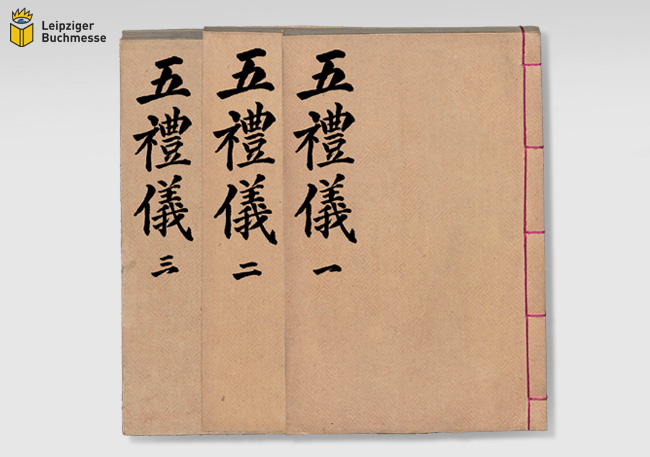 Leipziger
Buchmesse
五禮儀一
五禮儀二
五禮儀三